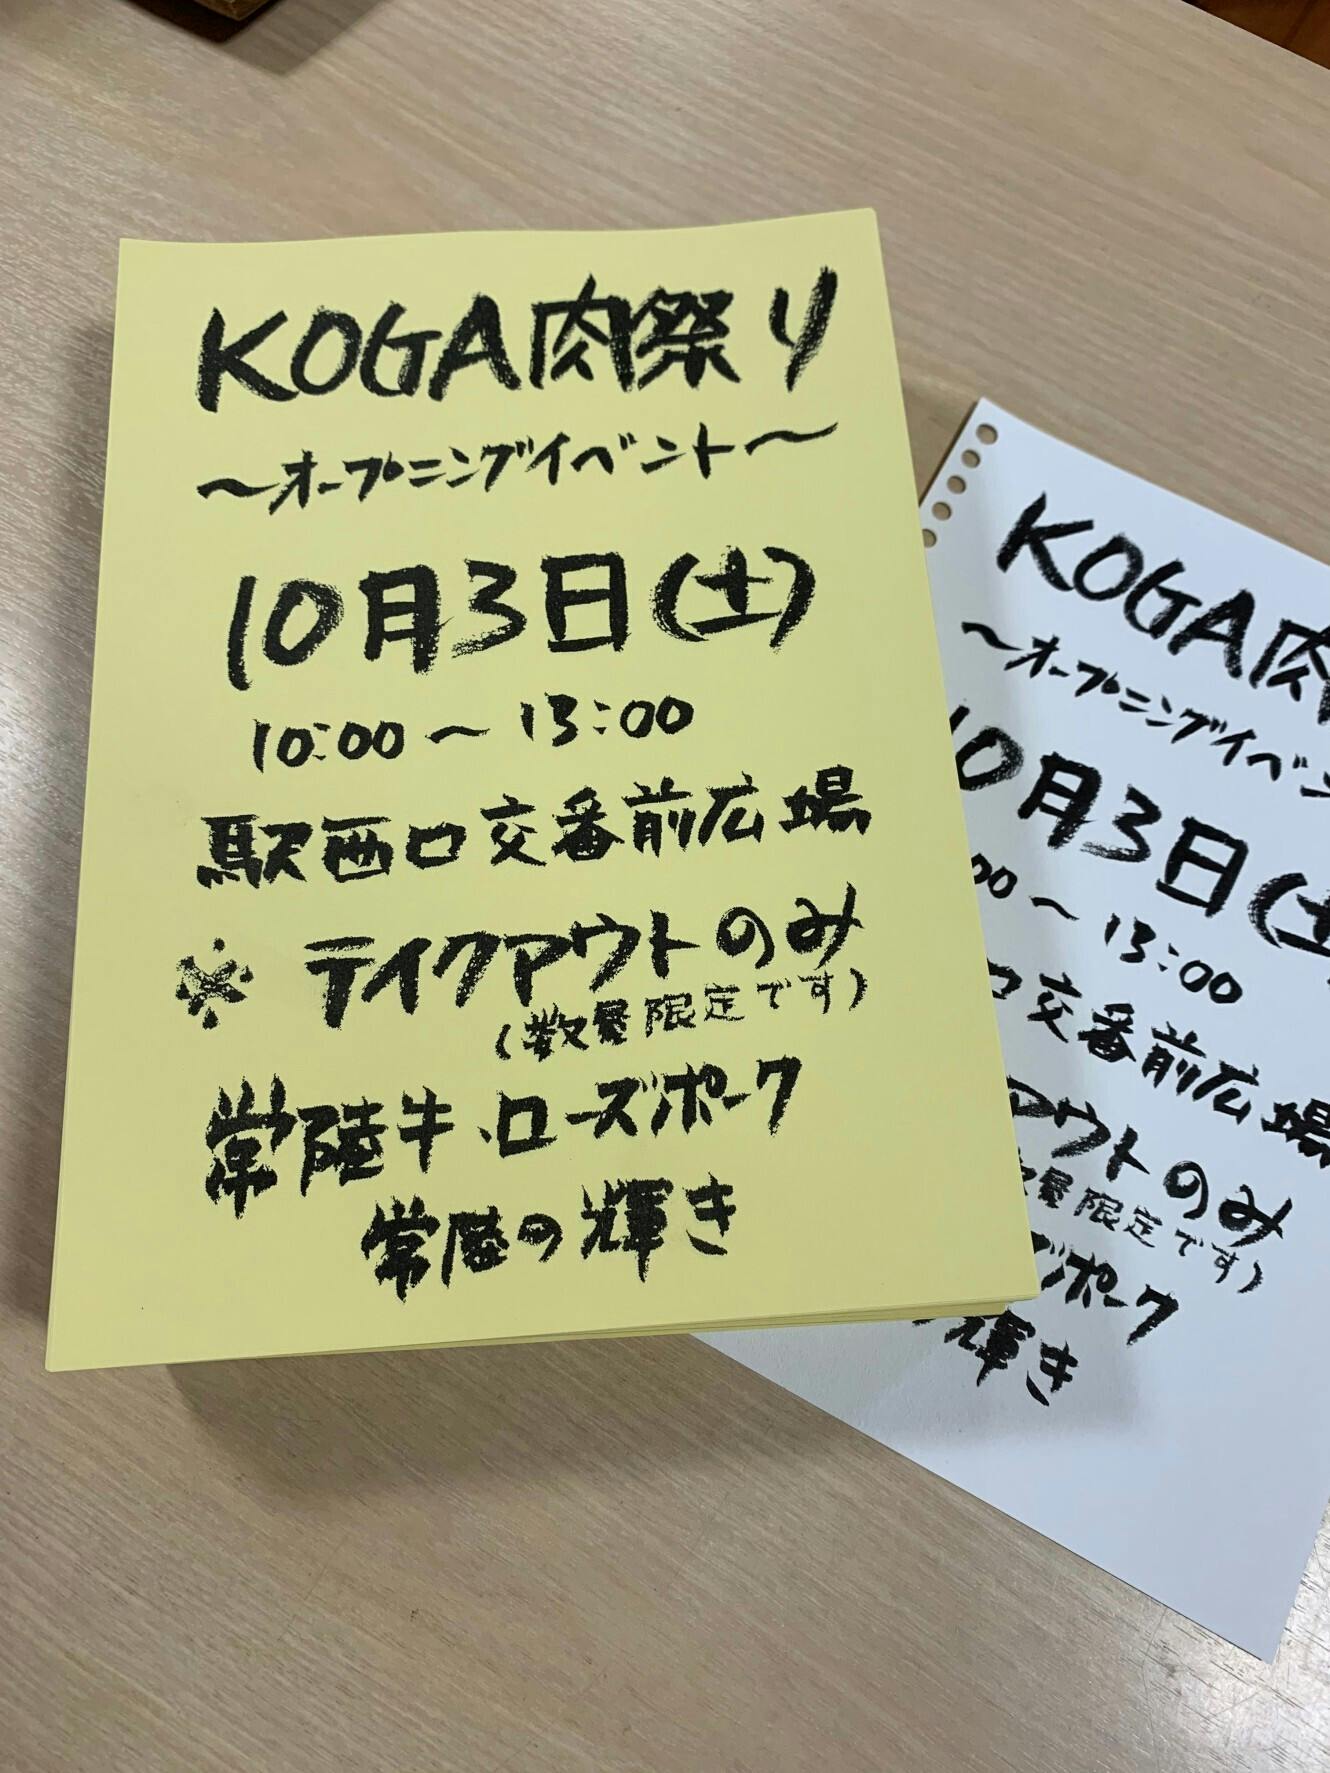 KOGA肉祭り
～オープニングイベント～
10月3日(土)
10:00～13:00
駅西口交番前広場
※テイクアウトのみ
(数量限定です)
常陸牛、ローズポーク
常陸の輝き
KOGA肉
～オープニングイベン
10月3日(土
00～13:00
口交番前広場
アウトのみ
数量限定です)
ズポーク
輝き